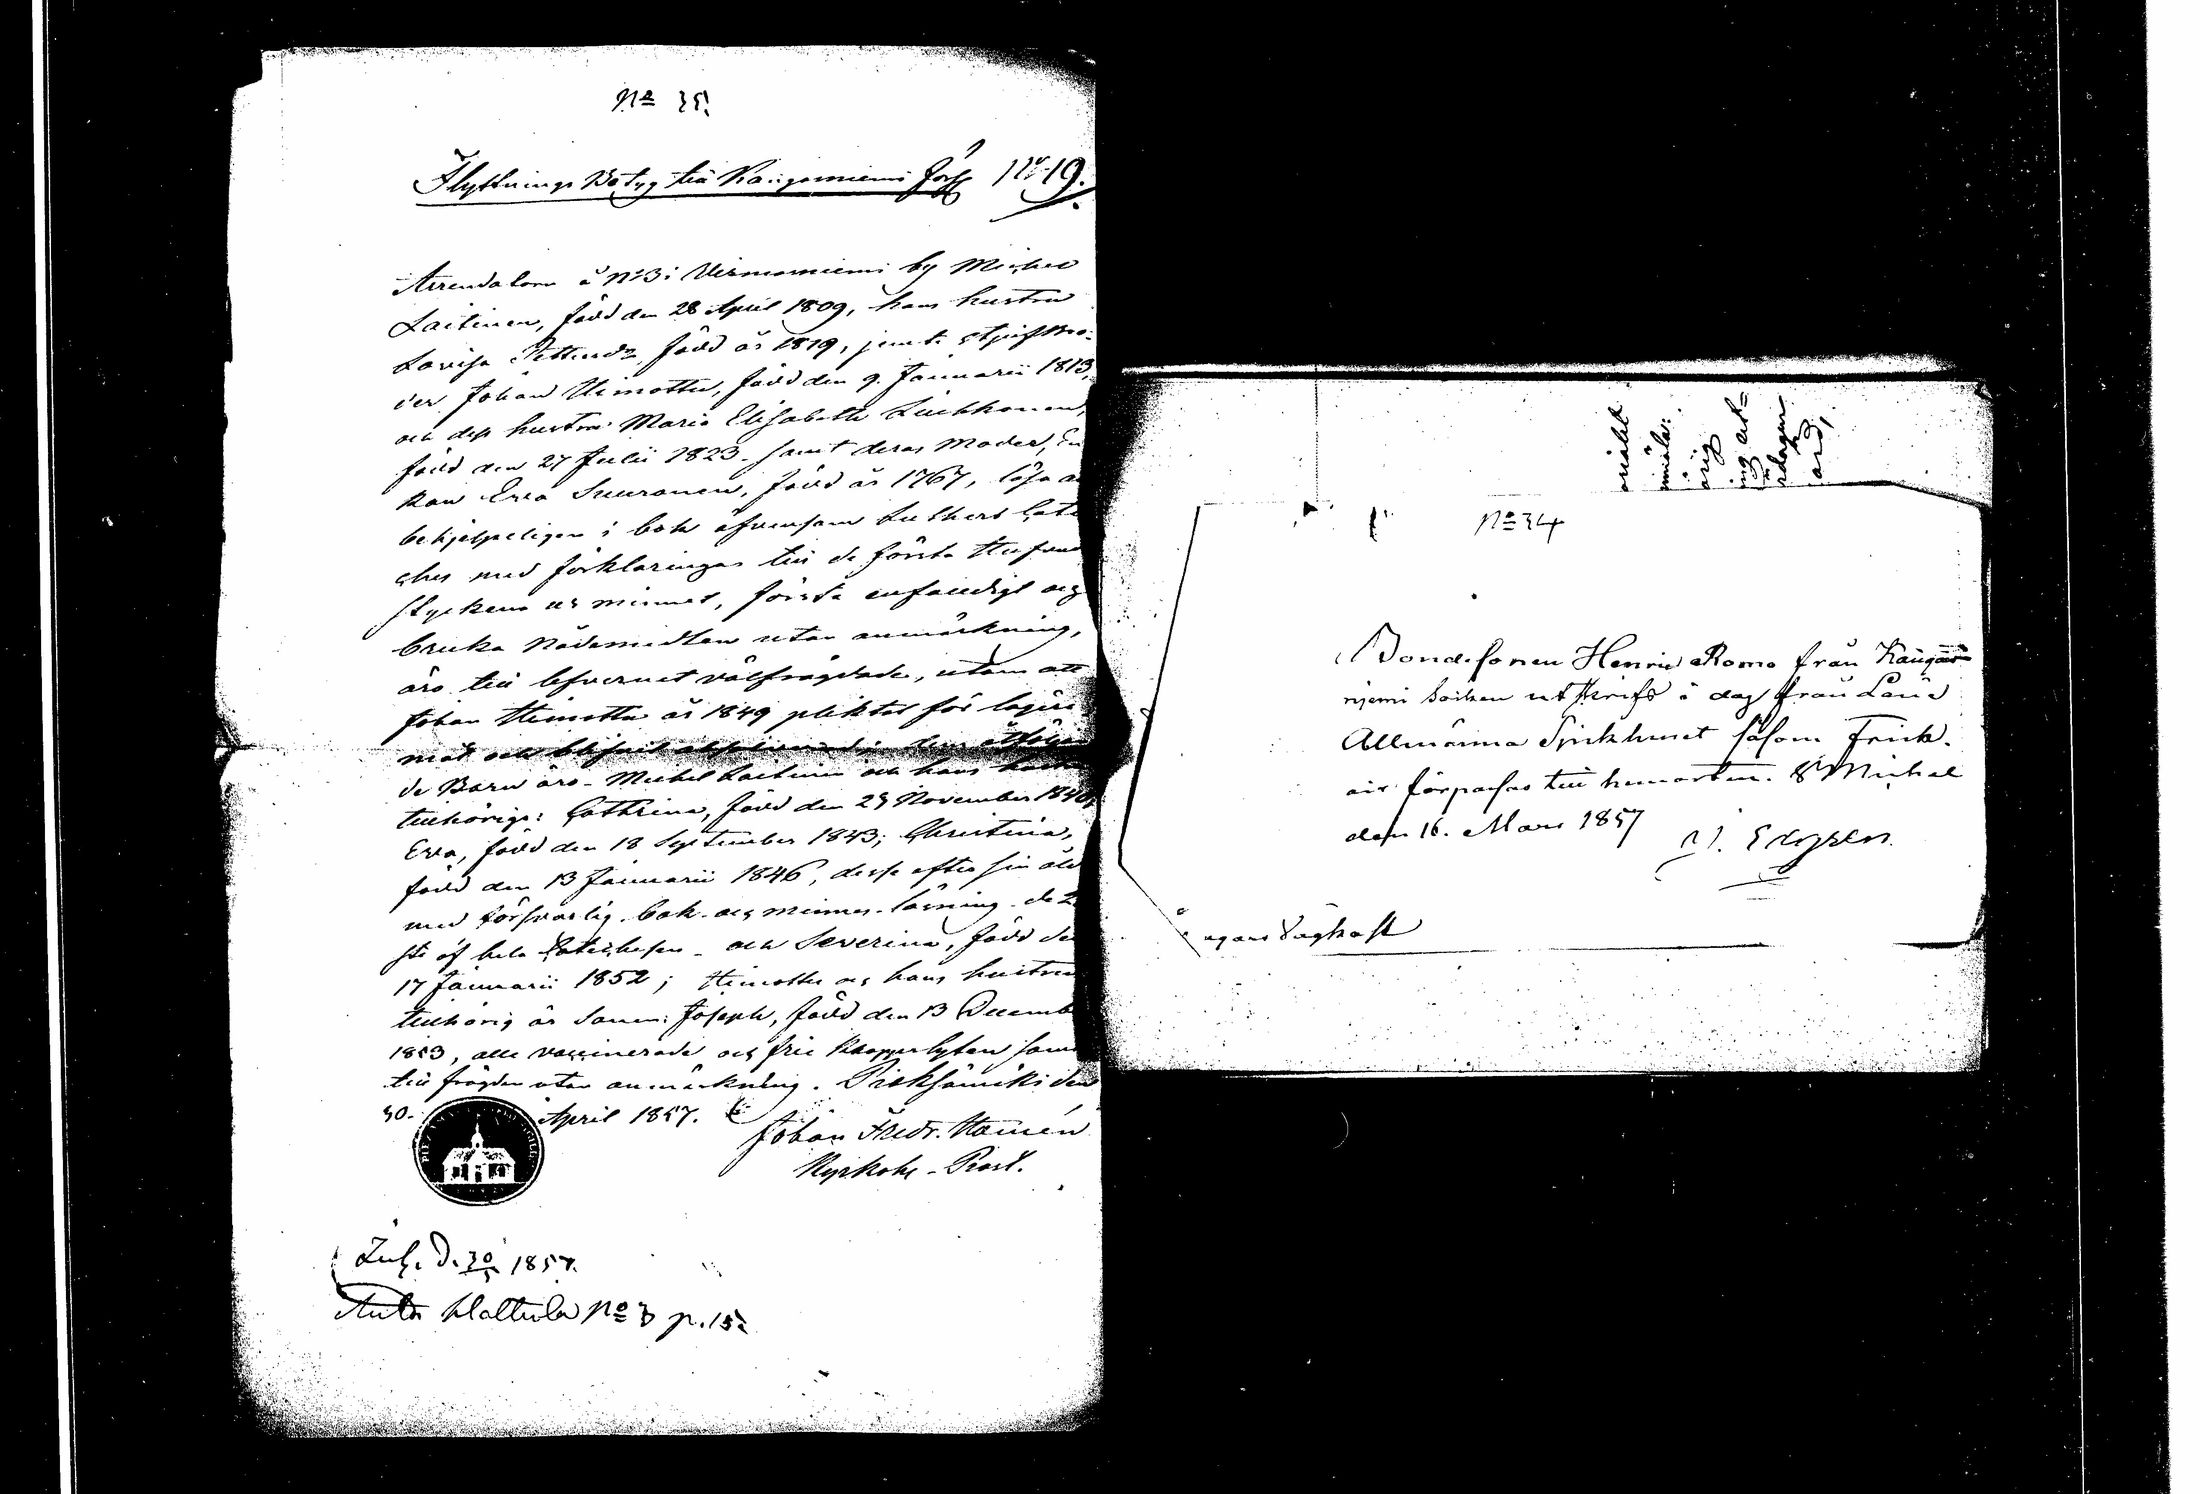 No 35.
Flyttnings Betyg till Kangasniemi förs. No 19.
Arrendatorn å No 3 i Virmasniemi by Michel
Laitinen, född den 28 April 1809, hans hustru
Lovisa Pettersdr, född år 1819, jemte stjufbro-
der Johan Himottu, född den 9. Januarii 1813,
och dess hustru Maria Elisabeth Liukkonen,
född den 27 Julii 1823. samt deras moder, En
kan Eva Suuronen, född år 1767, läsa
behjelpeligen i bok äfvensom Lutheri Cate
ches med förklaringar till de första Hufvud
styckena ur minnet, förstå enfaldigt och
bruka Nådemedlen utan anmärkning,
äro till lefvernet välfrägdade, utom att
Johan Himottu år 1849 pliktat för lägers
mål och blifvit
de Barn äro - Michel Laitinen och hans hustru
tillhöriga: Cathrina, född den 25 November 1840,
Eva, född den 18 September 1843; Christina,
född den 13 Januarii 1846, dessa efter sin åld
med försvarlig bok- och minnes-läsning
af hela Catechesen - och Severina, född den
17 Januarii 1852; Himottu och hans hustru
tillhörig är Sonen: Joseph, född den 13 Decemb
1853, alla vaccinerade och frie
till frägden utan anmärkning. Pieksämäki den
30. April 1857.
Johan Fredr.
Kyrkoh. - Prost.
d. 30/5 1857.
Hattula No 3 p. 152
No 34
Bondesonen Henric Romo från Kangas-
njemi socken utskrifs i dag från Läne
Allmänna Sjukhuset såsom Frisk.
att förpassas till hemorten. St Michel
den 16. Mars 1857